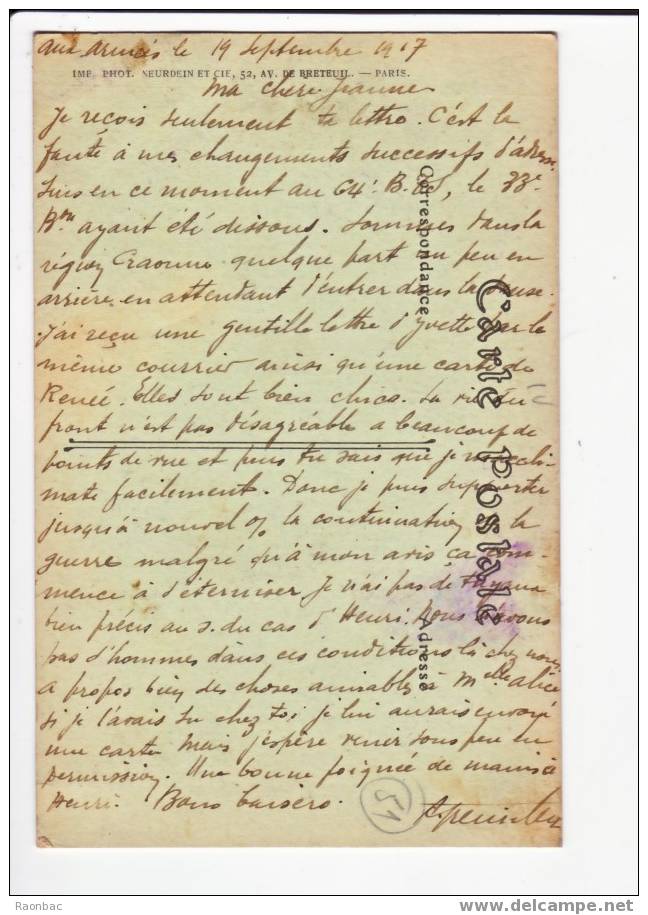 aux armées le 19 Septembre 1917
IMP. PHOT. NEURDEIN ET CIE, 52, AV. DE BRETEUIL. — PARIS.
Ma chère Jeanne
Je reçois seulement ta lettre. C'est la
faute à mes changements successifs d'adresse
Suis en ce moment au 64e B.
Bon ayant été dissous. Sommes dans la
région Craonne quelque part un peu en
arrière en attendant d'entrer dans la danse.
J'ai reçu une gentille lettre d'Yvette par le
même courrier ainsi qu'une carte de
Renée. Elles sont bien chics. La vie du
front n'est pas désagréable a beaucoup de
points de vue et puis tu sais que je m'accli-
mate facilement. Donc je puis supporter
jusqu'à nouvel o/ la continuation de la
guerre malgré qu'à mon avis ça com-
mence à s'éterniser. Je n'ai pas de tuyaux
bien précis au s. du cas d'Henri. Nous n'avons
pas d'hommes dans ces conditions là chez nous
a propos bien des choses aimables à Melle Alice
si je l'avais su chez toi je lui aurais envoyé
une carte mais j'espère venir sous peu en
permission. Une bonne poignée de mains à
Henri. Bons baisers.
51
Carte Postale
Correspondance
Adresse
Raonbac
delcampe.net